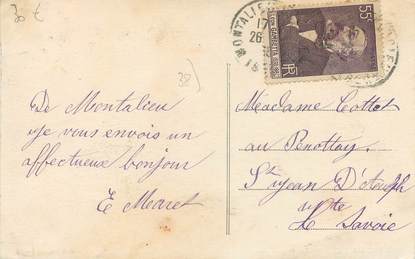 30 €
38)
MONTALIEU
17
26
55c
LEON GAMBETTA
RF
De Montalieu
je vous envois un
affectueux bonjour
E Mearet
Madame Cottet
au Penottay.
St jean D'aulph
Hte
Savoie